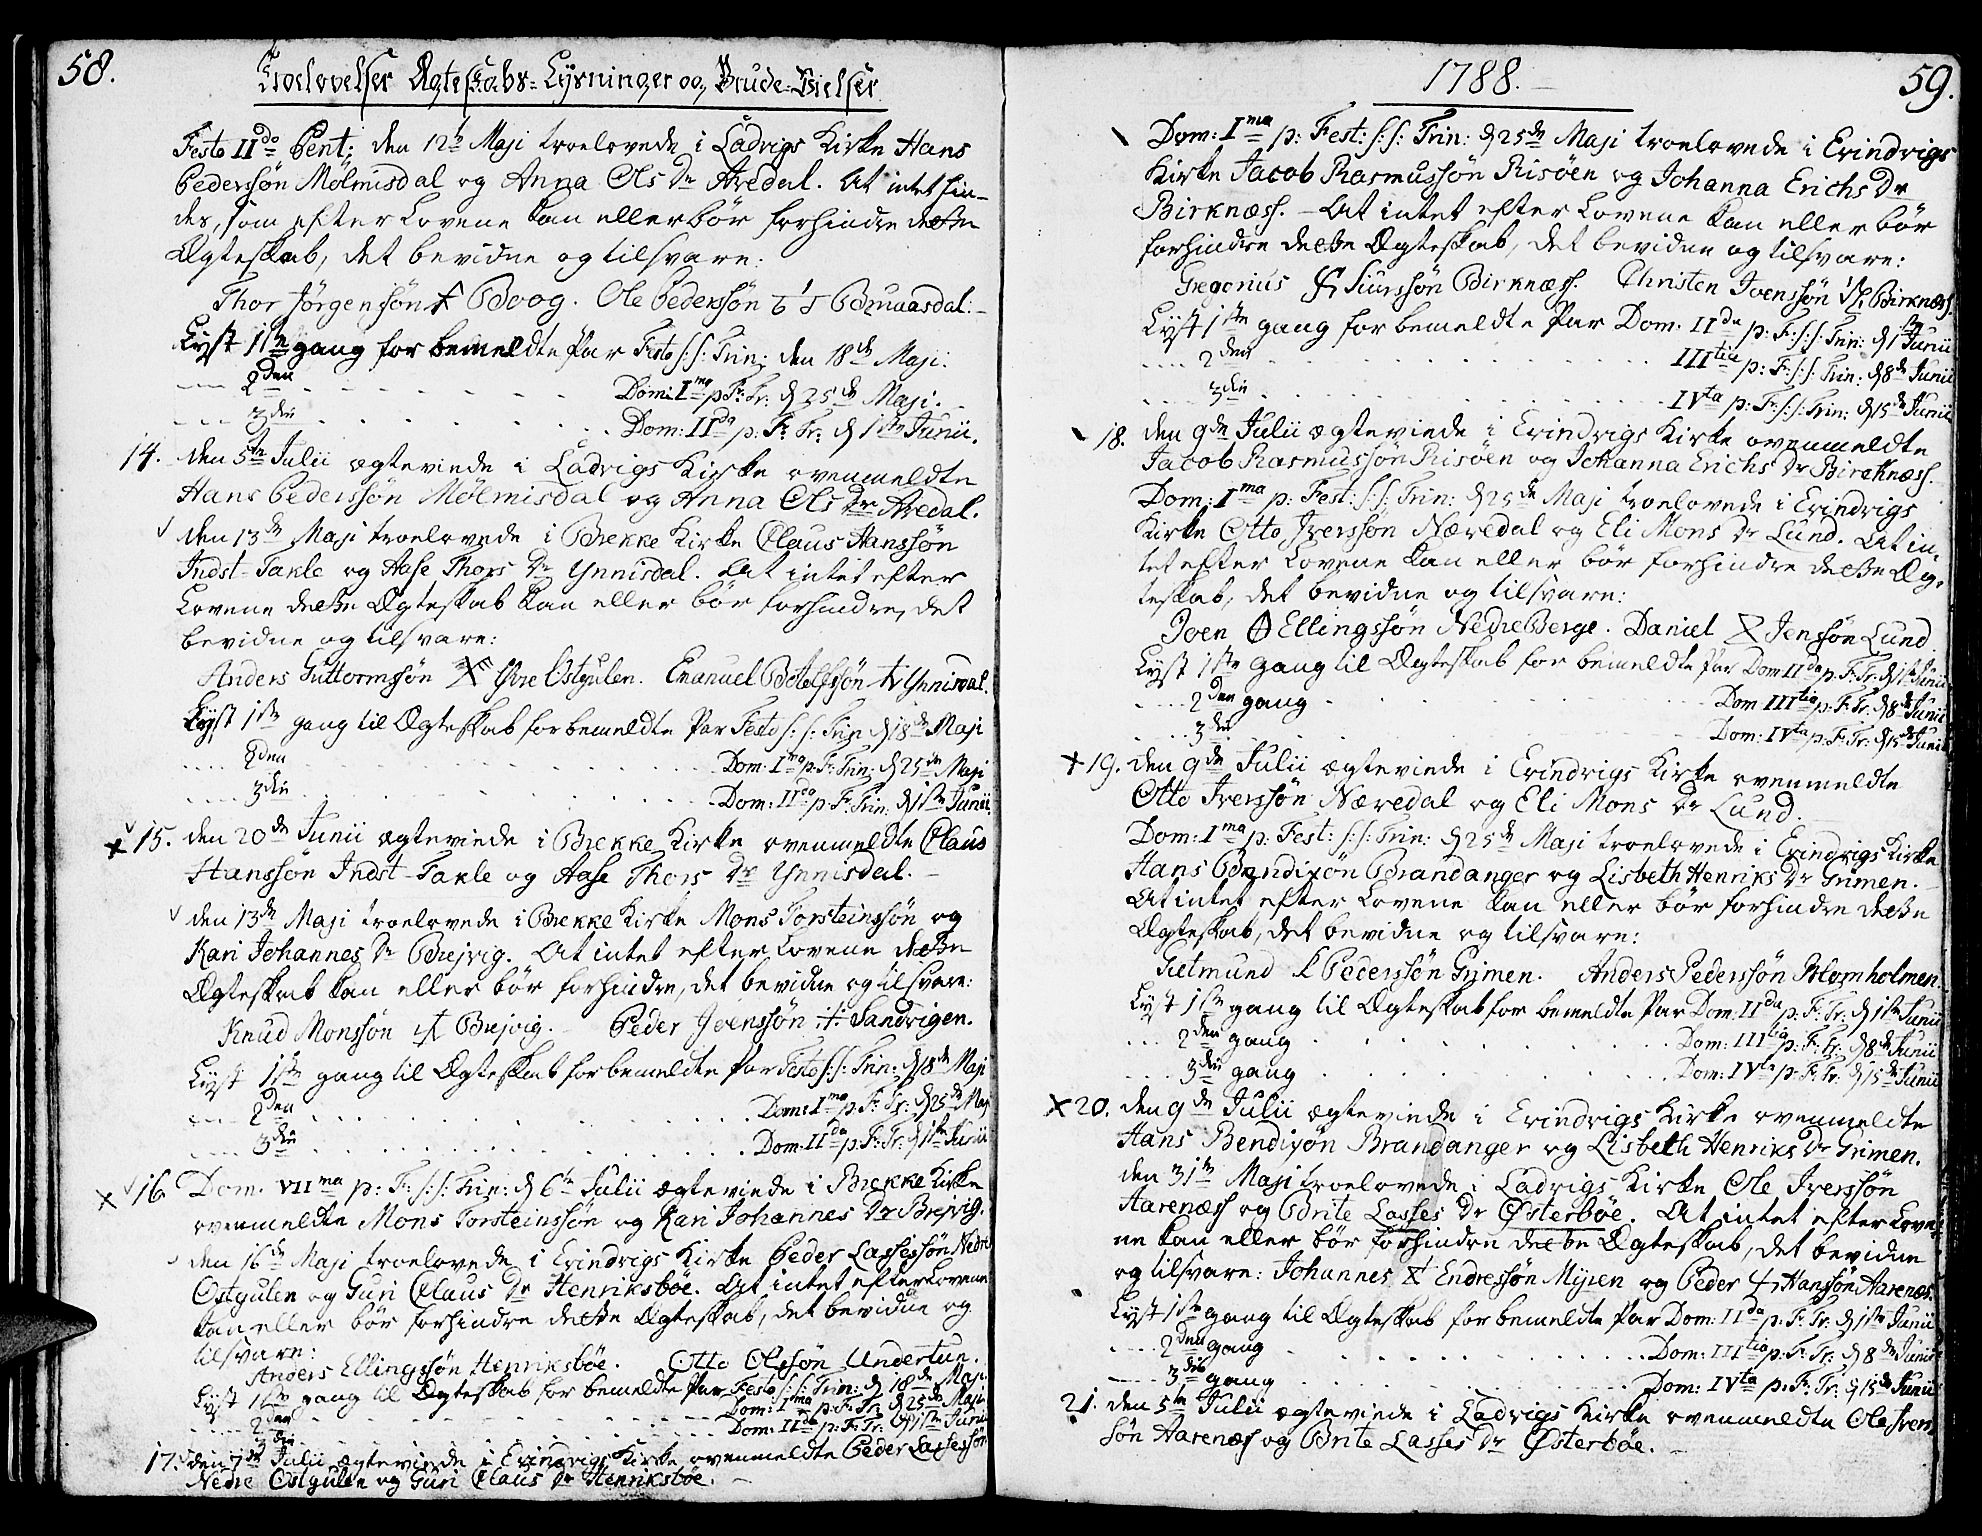 58.
Troelovelser Ægteskabs-Lysninger og Brude-Vielser
Festo IIdo Pent: den 12te Maji troelovede i Ladvigs Kirke Hans
Pederssön Mölmisdal og Anna Ols Dr Aredal. At intet fin-
des, som efter Lovene kan eller bör forhindre dette
Ægteskab, det bevidne og tilsvare:
Thor Jörgenssön Boog. Ole Pederssön Bruaasdal.
Lyst 1ste gang for bemeldte Par Festo S:S: Trin: den 18de Maji.
2den Dom: Ima p: F: Tr: d 25de Maji.
3die Dom: IIda p: F: Tr: d 1ste Junii.
14. den 5te Julii ægteviede i Ladvigs Kirke ovenmeldte
Hans Pederssön Mölmisdal og Anna Ols Dr Aredal.
den 13de Maji troelovede i Brekke Kirke Claus Hanssön
Indst-Takle og Aase Thors Dr Ynnisdal. At intet efter
Lovene dette Ægteskab kan eller bör forhindre, det
bevidne og tilsvare:
Anders Guttormssön X Yvre Ostgulen. Emanuel Botelfssön Ynnisdal.
Lyst 1ste gang til Ægteskab for bemeldte Par Festo S:S: Trin: d 18de Maji
2den Dom: Ima p: F: Trin: d 25de Maji
3die Dom: IIda p: F: Trin: d 1ste Junii.
x 15. den 20de Junii ægteviede i Brekke Kirke ovenmeldte Claus
Hanssön Indst-Takle og Aase Thors Dr Ynnisdal.
den 13de Maji troelovede i Brekke Kirke Mons Torsteinssön og
Kari Johannes Dr Brejvig. At intet efter Lovene dette
Ægteskab kan eller bör forhindre, det bevidne og tilsvare:
Knud Monssön Brejvig. Peder Joenssön Sandvigen.
Lyst 1ste gang til Ægteskab for bemeldte Par Festo S:S: Trin: d 18de Maji
2den Dom: Ima p: F: Tr: d 25de Maj
3die Dom: IIda p: F: Tr: d 1ste Junii
x 16. Dom. VIIma p: F: S:S: Trin: d 6te Julii ægteviede i Brekke Kirke
ovenmeldte Mons Torsteinssön og Kari Johannes Dr Brejvig.
den 16de Maji troelovede i Evindvigs Kirke Peder Lassessön Nedre
Ostgulen og Guri Claus Dr Henriksböe. At intet efter Lovene
kan eller bör forhindre dette Ægteskab, det bevidne og
tilsvare:
Anders Ellingssön Henriksböe. Otto Olssön Undertun.
Lyst 1ste gang til Ægteskab for bemeldte Par Festo S:S: Trin: d 18de Maji.
2den Dom: Ima p: F: Tr: d 25de Maji
3die Dom: IIda p: F: Tr: d 1ste Junii
17. den 7de Julii ægteviede i Evindvigs Kirke ovenmeldte Peder Lassessön
Nedre Ostgulen og Guri Claus Dr Henriksböe.
1788.
59.
Dom: Ima p: Fest: S:S: Trin: d 25de Maji troelovede i Evindvigs
Kirke Jacob Rasmussön Risöen og Johanna Erichs Dr
Birknæss. At intet efter Lovene kan eller bör
forhindre dette Ægteskab, det bevidne og tilsvare:
Gregorius Siurssön Birknæss. Christen Joenssön Birknæss.
Lyst 1ste gang for bemeldte Par Dom: IIda p: F: S:S: Trin: d 1ste Junii
2den IIItia p: F: S:S: Trin: d 8de Junii
3die IVta p: F: S:S: Trin: d 15de Junii
18. den 9de Julii ægteviede i Evindvigs Kirke ovenmeldte
Jacob Rasmussön Risöen og Johanna Erichs Dr Birchnæss.
Dom: Ima p: Fest: S:S: Trin: d 25de Maji troelovede i Evindvigs
Kirke Otto Iverssön Næredal og Eli Mons Dr Lund. At in-
tet efter Lovene kan eller bör forhindre dette Æg-
teskab, det bevidne og tilsvare:
Joen Ellingssön Nedre Berge. Daniel X Jenssön Lund.
Lyst 1ste gang til Ægteskab for bemeldte Par Dom IIda p: F: Tr: d 1ste Junii
2den gang Dom IIItia p: F: Tr: d 8de Junii
3die Dom: IVta p: F: Tr: d 15de Junii
x 19. den 9de Julii ægteviede i Evindvigs Kirke ovenmeldte
Otto Iverssön Næredal og Eli Mons Dr Lund.
Dom: Ima p: Fest: S:S: Trin: d 25de Maji troelovede i Evindvigs Kirke
Hans Bendixön Brandanger og Lisbeth Henriks Dr Grimen.
At intet efter Lovene kan eller bör forhindre dette
Ægteskab, det bevidne og tilsvare:
Gietmund Pederssön Grimen. Anders Pederssön Blomholmen.
Lyst 1ste gang til Ægteskab for bemeldte Par Dom: IIda p: F: Tr: d 1ste Junii
2den gang Dom: IIItia p: F: Tr: d 8de Junii
3die gang Dom: IVta p: F: Tr: d 15de Junii
x 20. den 9de Julii ægteviede i Evindvigs Kirke ovenmeldte
Hans Bendixön Brandanger og Lisbeth Henriks Dr Grimen.
den 31te Maji troelovede i Ladvigs Kirke Ole Iverssön
Aarenæss og Brite Lasses Dr Østerböe. At intet efter Love-
ne kan eller bör forhindre dette Ægteskab, det bevidne
og tilsvare: Johannes X Endressön Myren og Peder Hanssön Aarenæs.
Lyst 1ste gang til Ægteskab for bemeldte Par Dom: IIda p: F: Tr: d 1ste Junii
2den gang Dom: IIItia p: F: Tr: d 8de Junii
3die gang Dom: IVta p: F: Tr: d 15de Junii
21. den 5te Julii ægteviede i Ladvigs Kirke ovenmeldte Ole Ivers
sön Aarenæss og Brite Lasses Dr Østerböe.